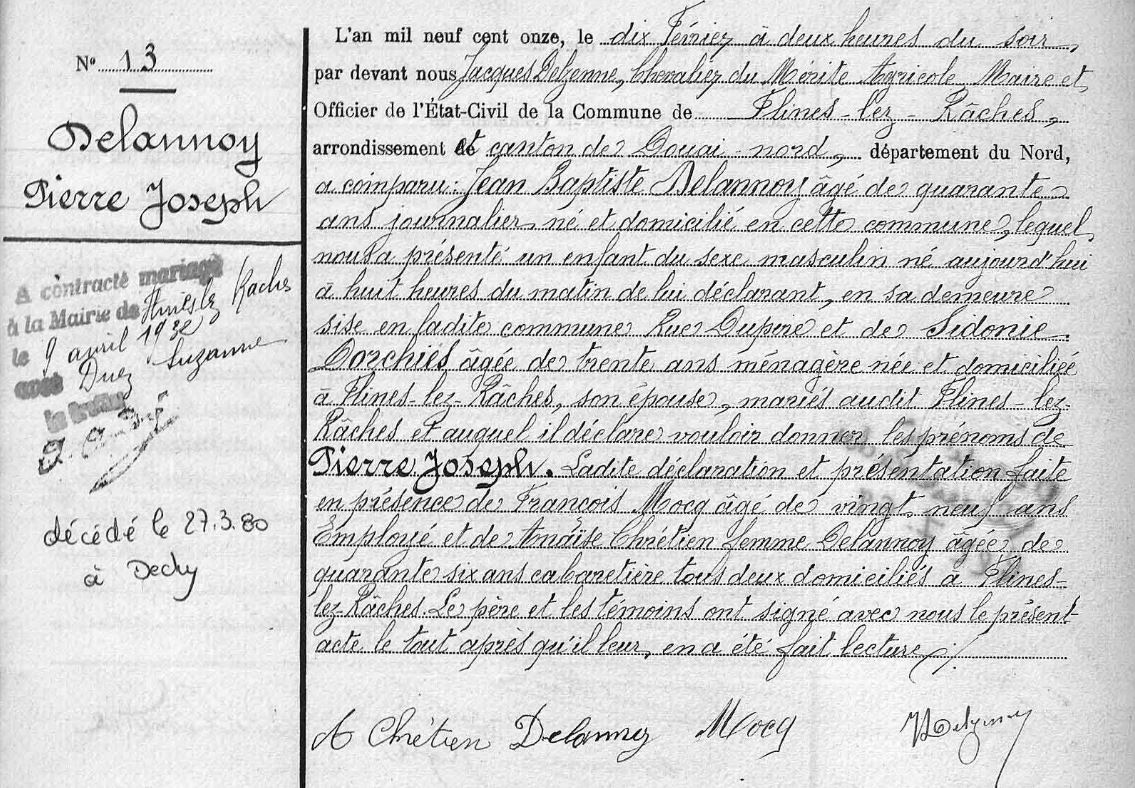 N° 13
Delannoy
Pierre Joseph
A contracté mariage
à la Mairie de Flines lez Raches
le 9 avril 1932
avec Duez Suzanne
le
décédé le 27.3.80
à Dechy
L'an mil neuf cent onze, le dix Février à deux heures du soir,
par devant nous Jacques Delzenne, Chevalier du Mérite Agricole Maire et
Officier de l'État-Civil de la Commune de Flines-lez-Râches,
arrondissement et canton de Douai-nord, département du Nord,
a comparu: Jean Baptiste Delannoy âgé de quarante
ans journalier né et domicilié en cette commune, lequel
nous a présenté un enfant du sexe masculin né aujourd'hui
à huit heures du matin de lui déclarant, en sa demeure
sise en ladite commune Rue Dupere et de Sidonie
Dorchies âgée de trente ans ménagère née et domiciliée
à Flines-lez-Râches, son épouse, mariés audit Flines-lez
Râches et auquel il déclare vouloir donner les prénoms de
Pierre Joseph. Ladite déclaration et présentation faite
en présence de François Mocq âgé de vingt neuf ans
Employé et de Anaïse Chrétien femme Delannoy âgée de
quarante six ans cabaretière tous deux domiciliés à Flines-
lez-Râches. Le père et les témoins ont signé avec nous le présent
acte le tout après qu'il leur, en a été fait lecture ./.
A Chrétien Delannoy Mocq JDelzenne